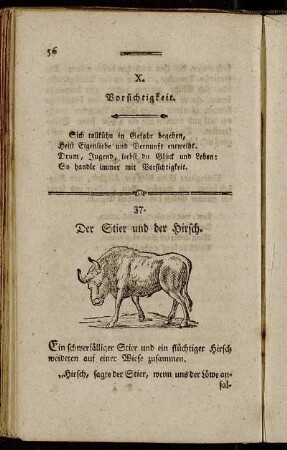 56
X.
Vorsichtigkeit.
Sich tollkühn in Gefahr begeben,
Heißt Eigenliebe und Vernunft entweiht.
Drum, Jugend, liebst du Glück und Leben:
So handle immer mit Vorsichtigkeit.
37.
Der Stier und der Hirsch.
Ein schwerfälliger Stier und ein flüchtiger Hirsch
weideten auf einer Wiese zusammen.
„Hirsch, sagte der Stier, wenn uns der Löwe an-
fal-